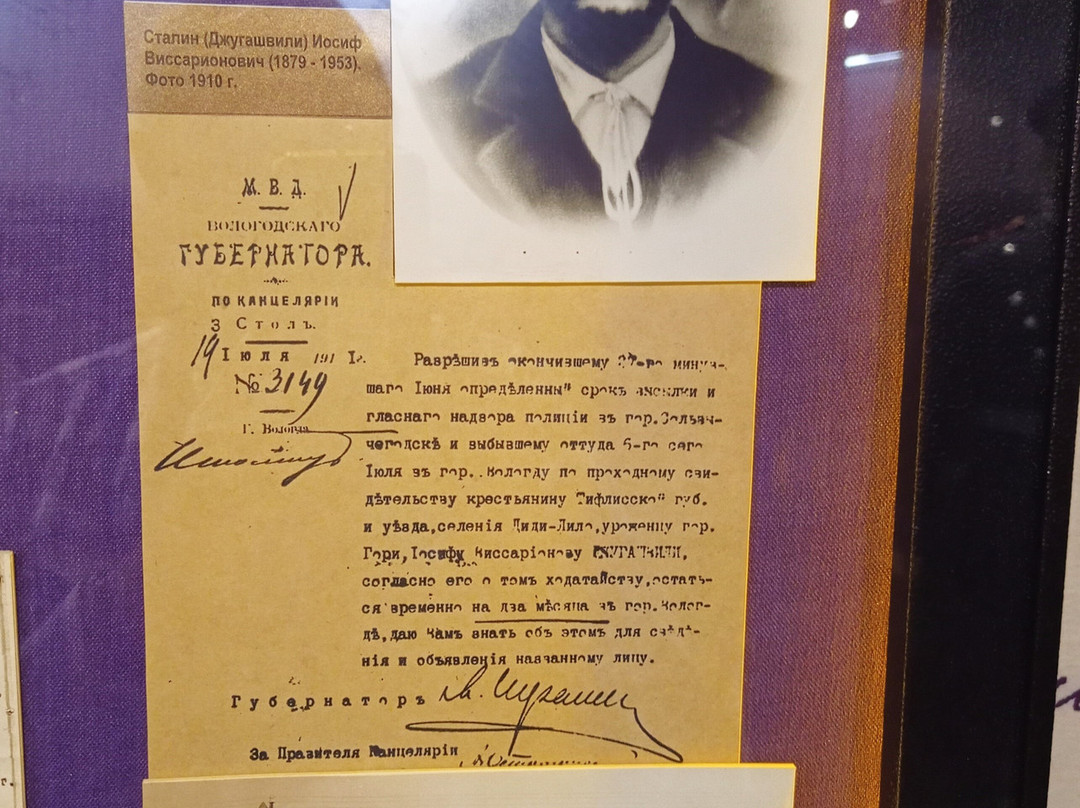 Сталин (Джугашвили) Иосиф
Виссарионович (1879 - 1953).
Фото 1910 г.
М. В. Д.
ВОЛОГОДСКАГО
ГУБЕРНАТОРА.
ПО КАНЦЕЛЯРІИ
3 Столъ.
19 Іюля 191 1г.
№ 3149
Г. Вологда
Разрѣшивъ окончившему 27-го минув-
шаго Іюня опредѣленный срокъ высылки и
гласнаго надзора полиціи въ гор.Сольвы-
чегодскѣ и выбывшему оттуда 6-го сего
Іюля въ гор. Вологду по проходному сви-
дѣтельству крестьянину Тифлисской губ.
и уѣзда,селенія Диди-Лило,уроженцу гор.
Гори,Іосифу Виссаріонову ДЖУГАШВИЛИ,
согласно его о томъ ходатайству,остать-
ся временно на два мѣсяца въ гор.Волог-
дѣ,даю Вамъ знать объ этомъ для свѣдѣ-
нія и объявленія названному лицу.
Губернаторъ
За Правителя Канцеляріи